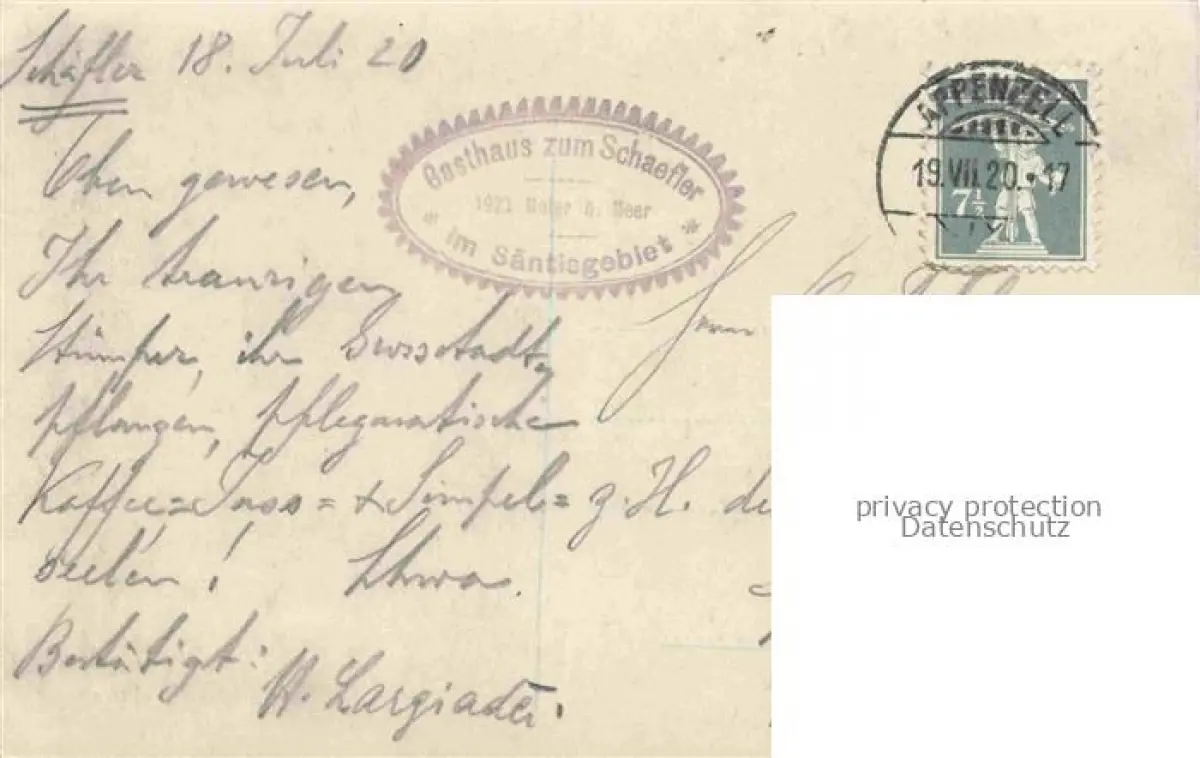 Schäfler 18. Juli 20
Oben gewesen,
Ihr traurigen
Stümper, ihr Grossstadt-
pflanzen, pflegmatische
Kaffee=Jass= + Simpel= z. H.
seelen!
Bestätigt:
H. Largiader.
Gasthaus zum Schaefler
1921 Meter ü. Meer
* im Säntisgebiet *
APPENZELL
19.VII.20.-17
7½
Herrn
privacy protection
Datenschutz